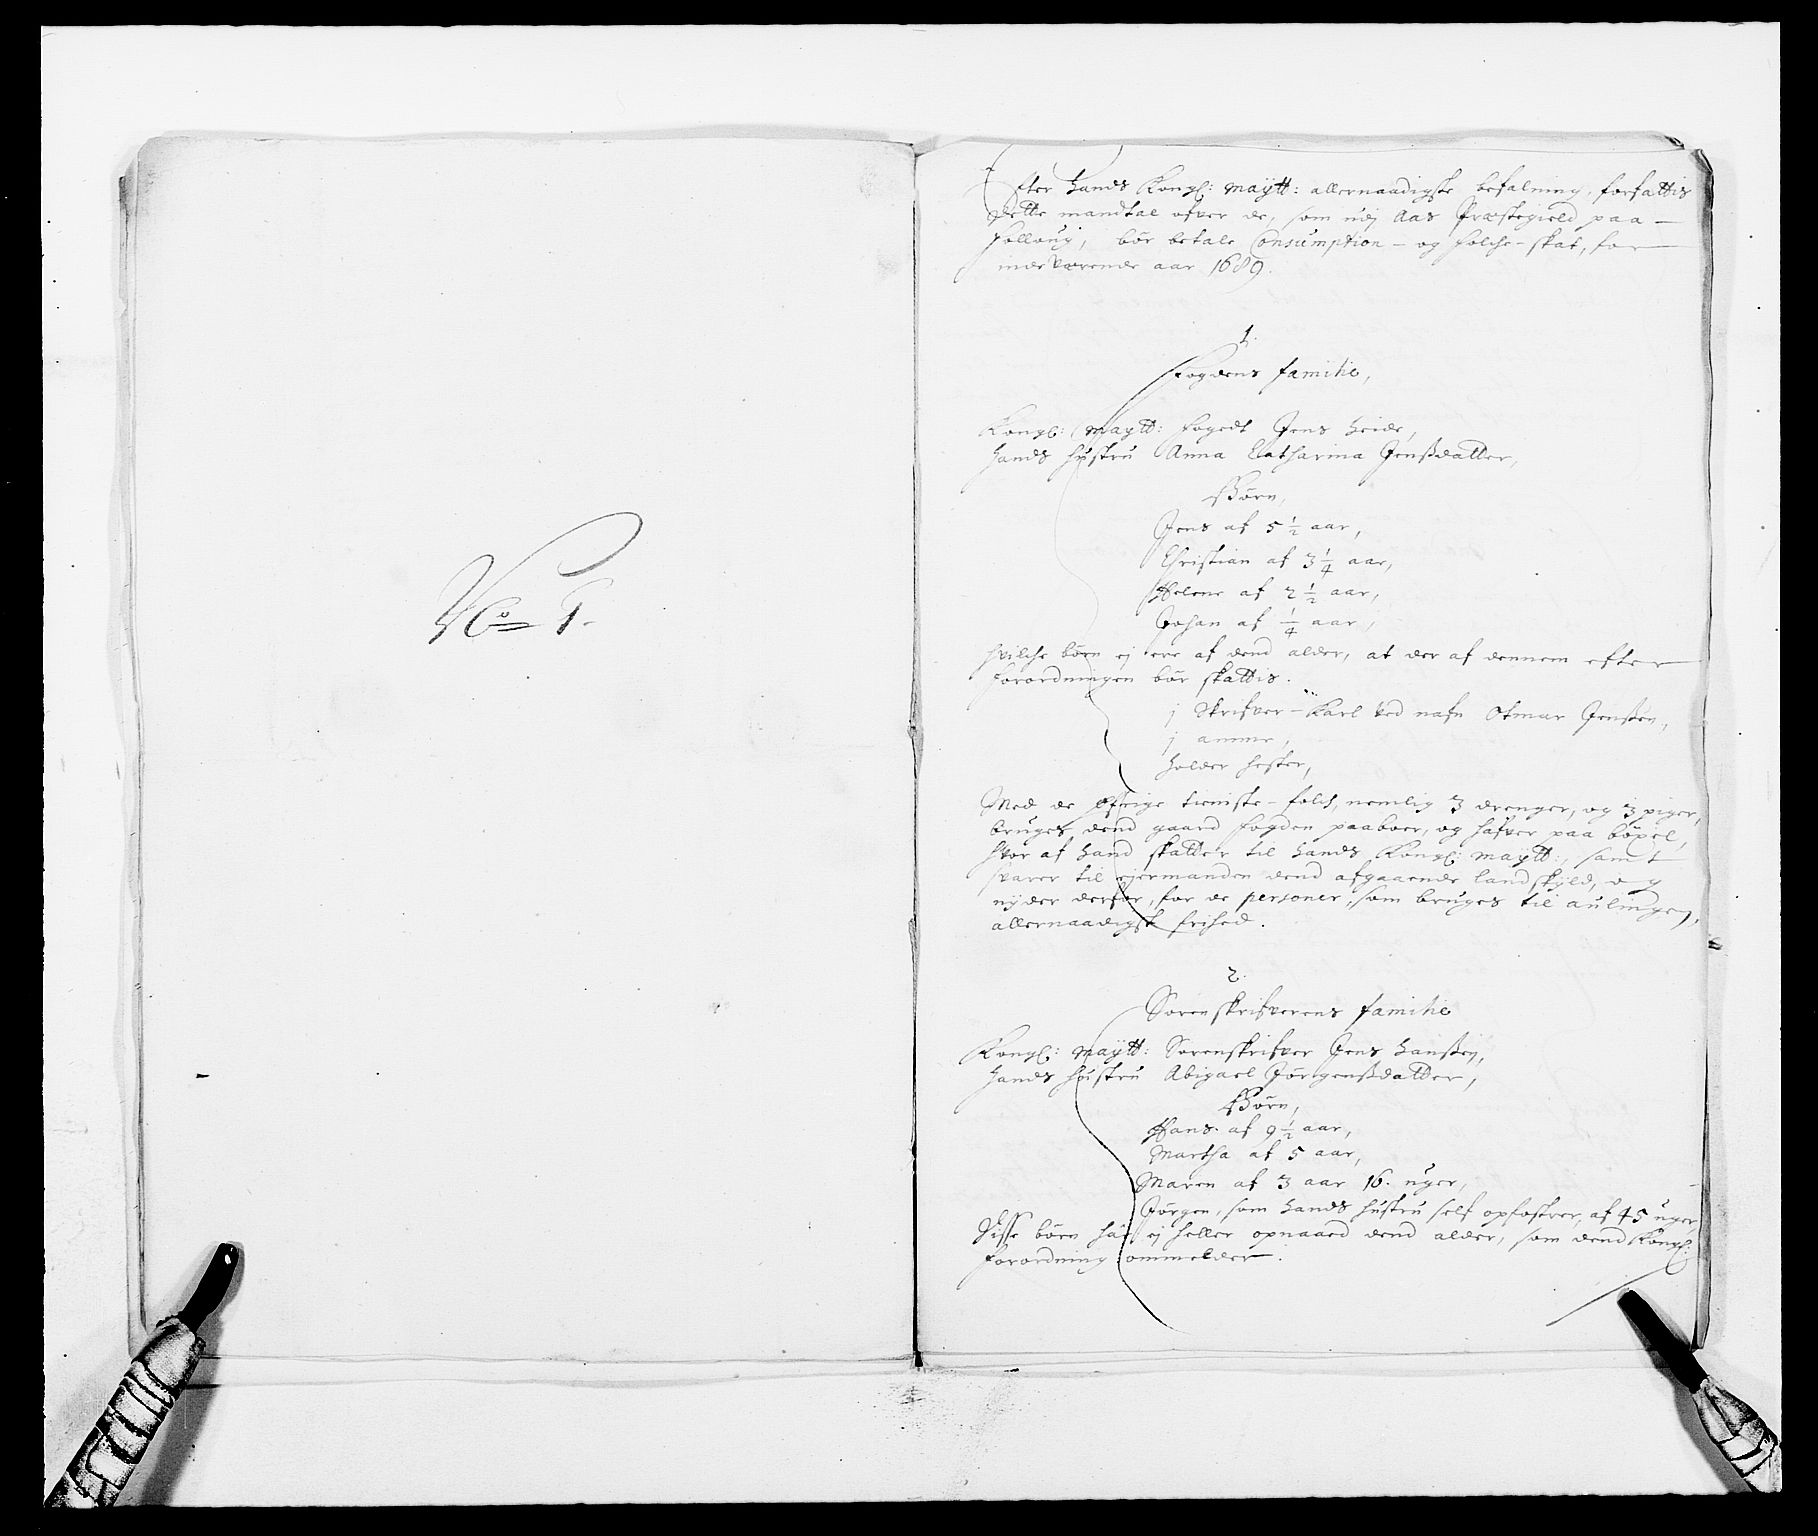 No 1.
Efter Hands Kongl: Maÿtt: allernaadigste befalning, forfattis
dette mandtal ofver de, som udj Aas Præstegield paa
Folloug, bør betale Consumption- og folche-skat, for
indeværende aar 1689.
1.
Fogdens familie,
Kongl: Maÿtt: foged Jens Heide,
Hands hustru Anna Catharina Jenßdatter,
Børn,
Jens af 5 1/2 aar,
Christian af 3 1/4 aar,
Helene af 2 1/2 aar,
Johan af 1/4 aar,
hvilche børn ej ere af dend alder, at der af dennem efter
forordningen bør skattis.
j Skrifver-Karl ved nafn Otmar Jenßen,
j amme,
Holder hester,
Med de øfrige tieniste-folch, nemlig 3 drenger, og 3 piger,
bruges dend gaard fogden paaboer, og hafver paa böxel,
hvor af hand skatter til Hands Kongl: Maÿtt:, samt
svarer til eiermanden dend afgaaende landskÿld, og
nÿder derfor, for de personer, som bruges til aulingen,
allernaadigst frihed.
2.
Sorenskrifverens familie
Kongl: Maÿtt: Sorenskrifver Jens Hanßen,
Hands hustru Abigael Jørgenßdatter,
Børn,
Hans af 9 1/2 aar,
Martha af 5 aar,
Maren af 3 aar 16. uger,
Jørgen, som hands hustru self opfostrer, af 45 uger
Disse børn har ej heller opnaaed dend alder, som dend Kongl:
forordning ommelder.